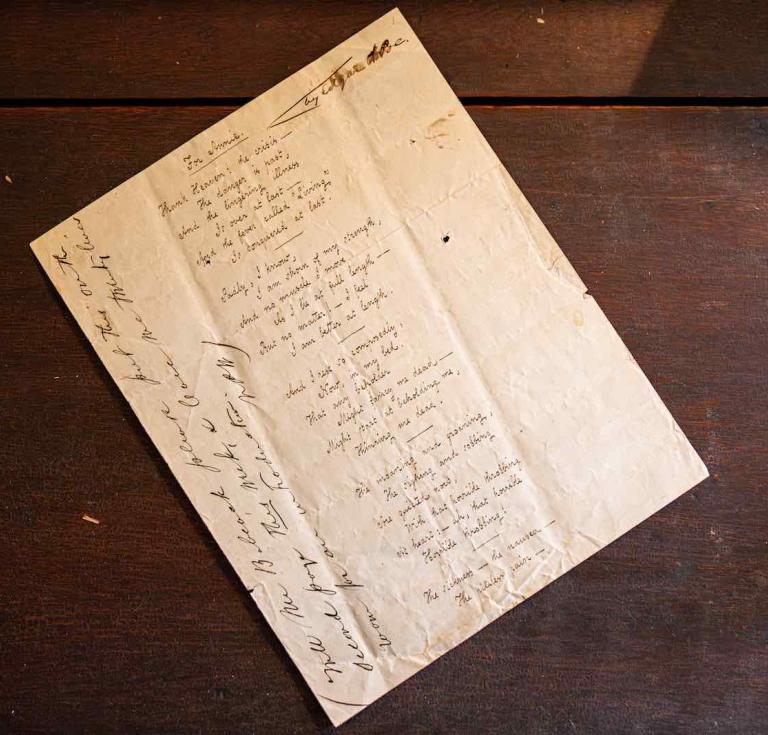 by Edgar A Poe.
For Annie.
Thank Heaven! the crisis —
The danger is past,
And the lingering illness
Is over at last —
And the fever called "Living"
Is conquered at last.
Sadly, I know,
I am shorn of my strength,
And no muscle I move
As I lie at full length —
But no matter — I feel
I am better at length.
And I rest so composedly,
Now, in my bed,
That any beholder
Might fancy me dead —
Might start at beholding me,
Thinking me dead.
The moaning and groaning,
The sighing and sobbing
Are quieted now,
With that horrible throbbing
At heart: — ah, that horrible
Horrible throbbing!
The sickness — the nausea —
The pitiless pain —
Will Mr Babcock please put this on the
second page